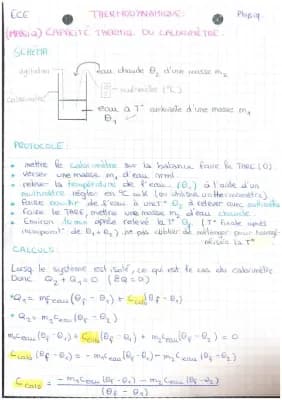 ECE THERMODYNAMIQUE: Physiq.
(MANIQ) CAPACITÉ THERMIQ. DU CALORIMÈTRE.
SCHÉMA:
agitateur
eau chaude θ2 d'une masse m2
(°C)
calorimètre
eau à T° ambiante d'une masse m1
θ1
PROTOCOLE:
• mettre le calorimètre sur la balance faire la TARE (0).
• verser une masse m1 d'eau
• relever la température de l'eau (θ1) à l'aide d'un
multimètre régler en °C
• Faire chauffer de l'eau à une T° θ2 à relever avec multimètre
• Faire la TARE, mettre une masse m2 d'eau chaude.
• Environ après relevé la T° θf. (T° finale après
de θ1 + θ2) ne pas oublier de mélanger pour
la T°
CALCULS:
Lorsq. le système est isolé, ce qui est le cas du calorimètre
Donc Q2 + Q1 = 0 (ΣQ = 0)
• Q1 = m1 ceau (θf - θ1) + Ccalo (θf - θ1)
• Q2 = m2 ceau (θf - θ2)
m1 ceau (θf - θ1) + Ccalo (θf - θ1) + m2 ceau (θf - θ2) = 0
Ccalo (θf - θ1) = - m1 ceau (θf - θ1) - m2 ceau (θf - θ2)
Ccalo = - m1 ceau (θf - θ1) - m2 ceau (θf - θ2)
(θf - θ1)